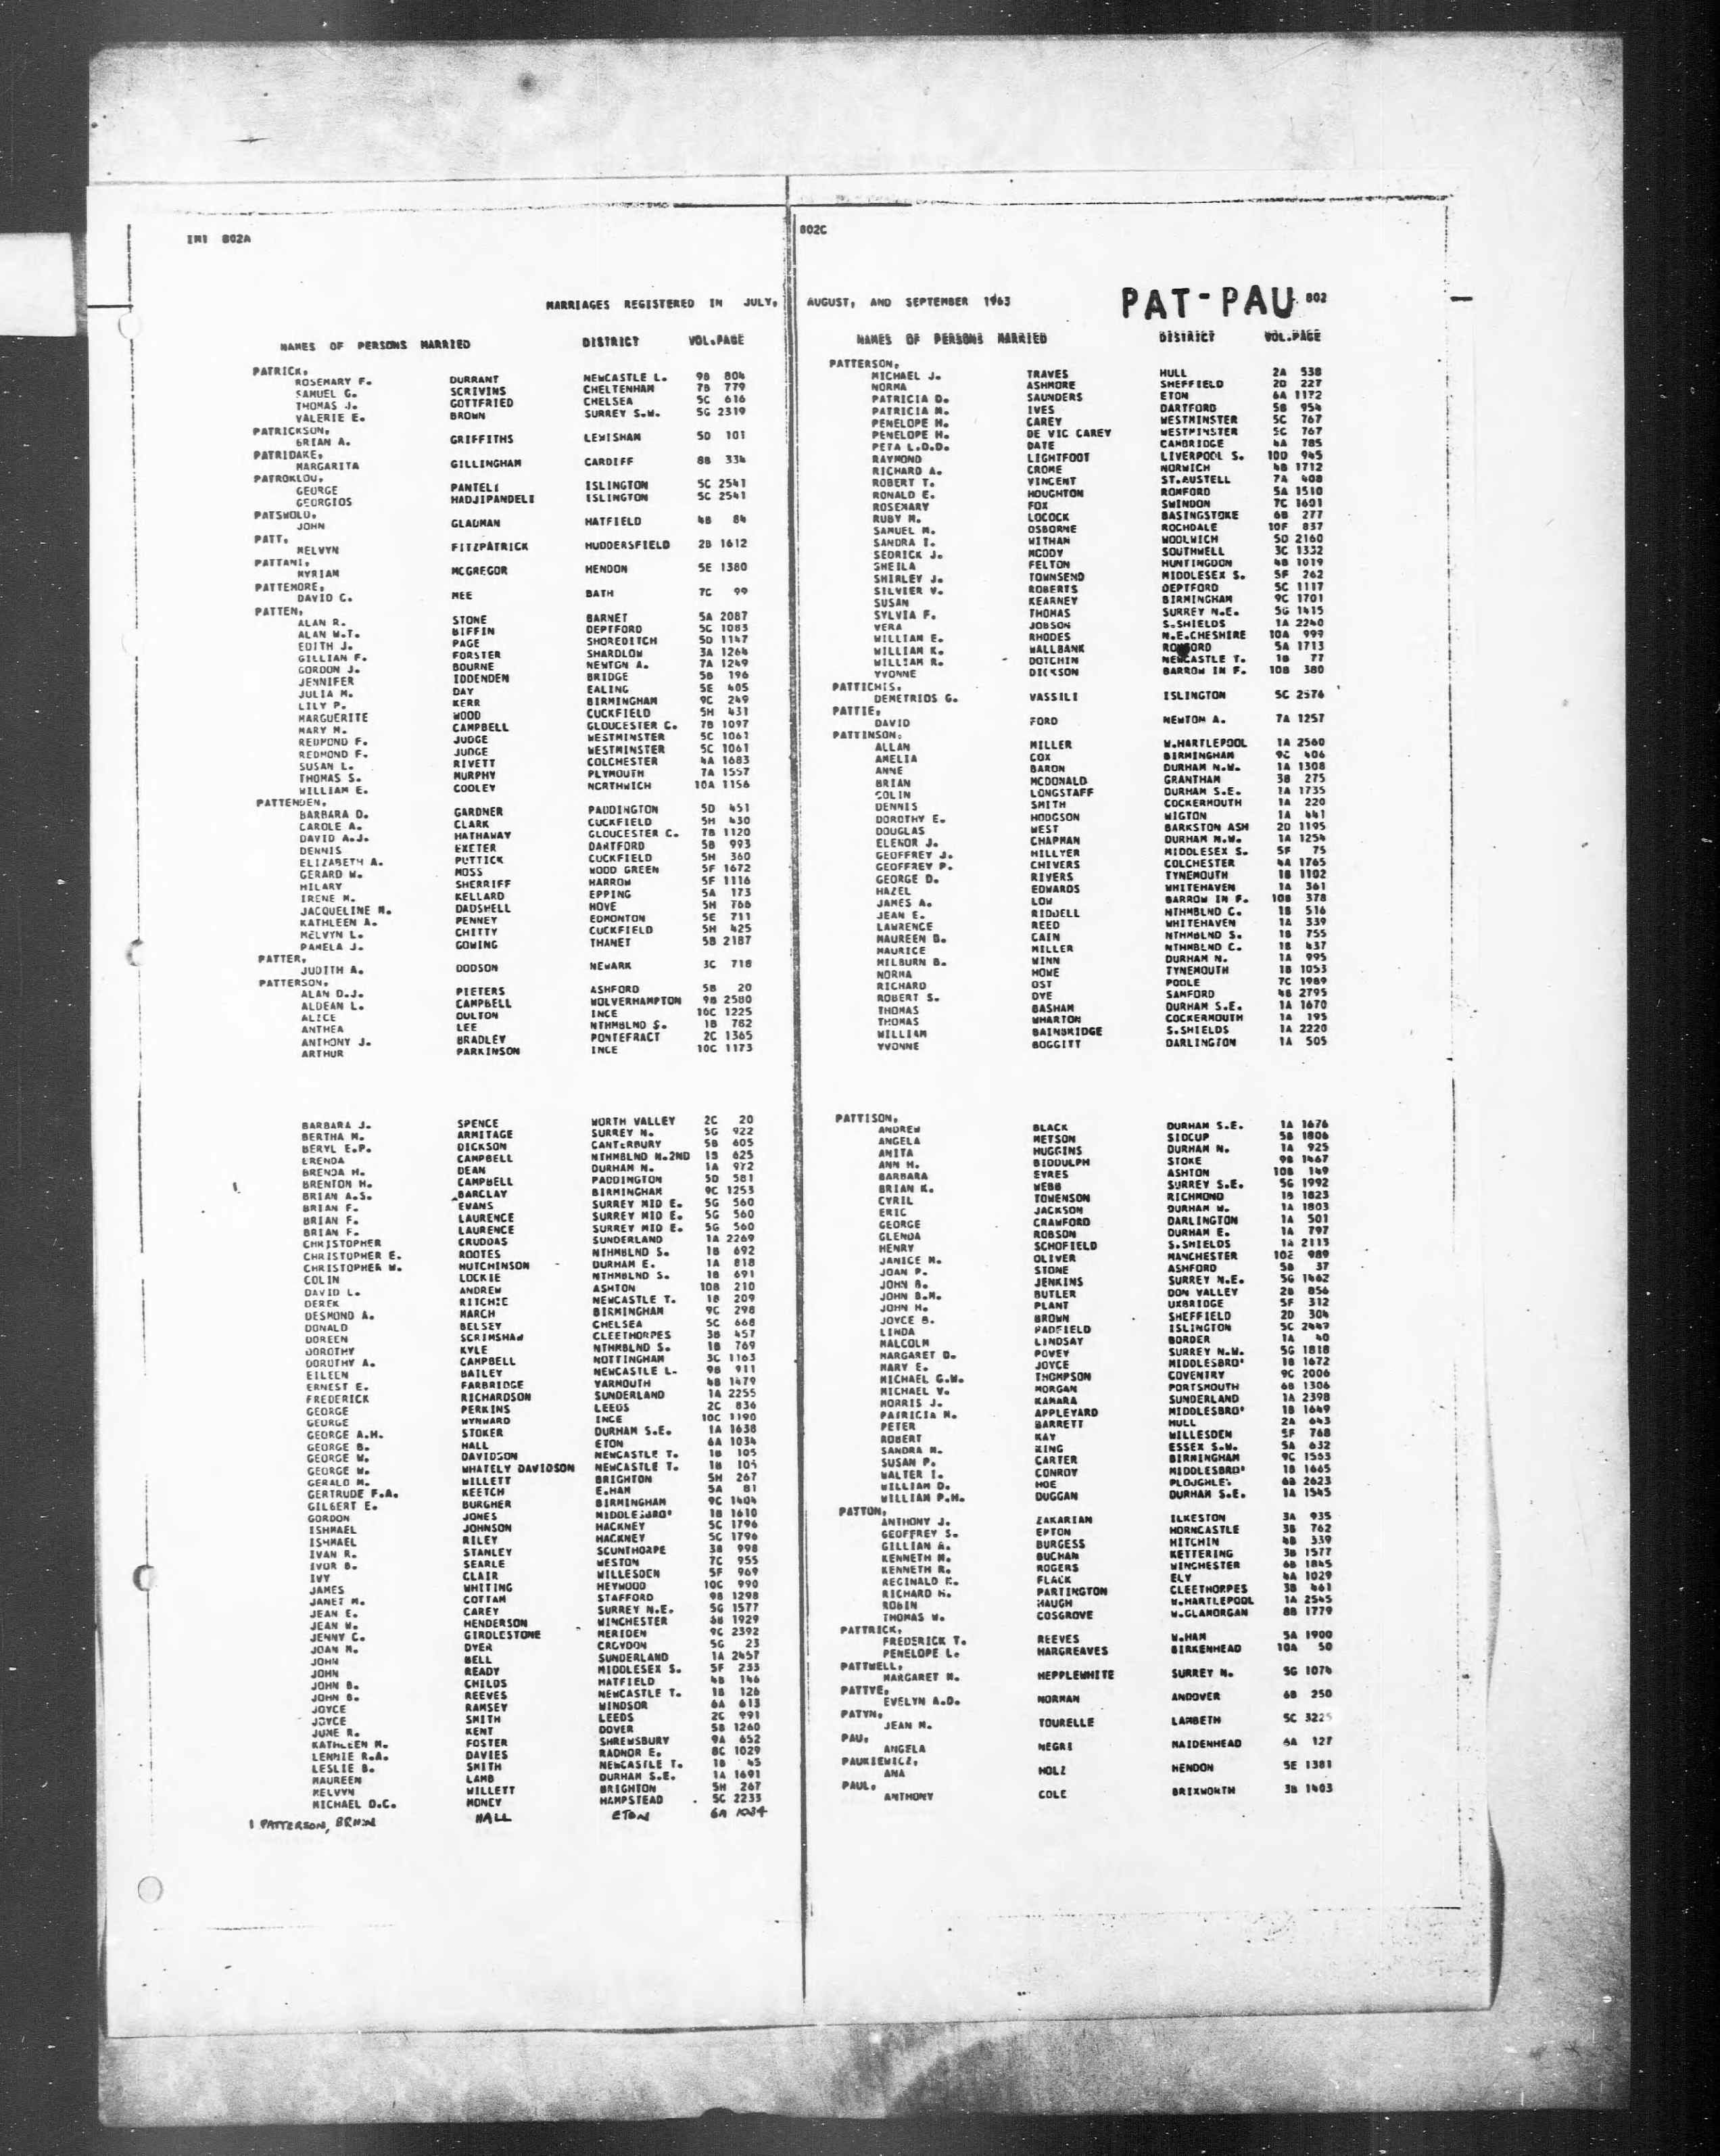 IM1 802A
802C
MARRIAGES REGISTERED IN JULY, AUGUST, AND SEPTEMBER 1963
PAT-PAU 802
NAMES OF PERSONS MARRIED DISTRICT VOL.PAGE
PATRICK,
ROSEMARY F. DURRANT NEWCASTLE L. 9B 804
SAMUEL G. SCRIVINS CHELTENHAM 7B 779
THOMAS J. GOTTFRIED CHELSEA 5C 616
VALERIE E. BROWN SURREY S.W. 5G 2319
PATRICKSON,
BRIAN A. GRIFFITHS LEWISHAM 5D 101
PATRIDAKE,
MARGARITA GILLINGHAM CARDIFF 8B 334
PATROKLOU,
GEORGE PANTELI ISLINGTON 5C 2541
GEORGIOS HADJIPANDELI ISLINGTON 5C 2541
PATSWOLD,
JOHN GLADMAN HATFIELD 4B 84
PATT,
MELVYN FITZPATRICK HUDDERSFIELD 2B 1612
PATTANI,
MYRIAM MCGREGOR HENDON 5E 1380
PATTEMORE,
DAVID C. MEE BATH 7C 99
PATTEN,
ALAN R. STONE BARNET 5A 2087
ALAN W.T. BIFFIN DEPTFORD 5C 1083
EDITH J. PAGE SHOREDITCH 5D 1147
GILLIAN F. FORSTER SHARDLOW 3A 1264
GORDON J. BOURNE NEWTON A. 7A 1249
JENNIFER IDDENDEN BRIDGE 5B 196
JULIA M. DAY EALING 5E 405
LILY P. KERR BIRMINGHAM 9C 249
MARGUERITE WOOD CUCKFIELD 5H 431
MARY M. CAMPBELL GLOUCESTER C. 7B 1097
REDMOND F. JUDGE WESTMINSTER 5C 1061
REDMOND F. JUDGE WESTMINSTER 5C 1061
SUSAN L. RIVETT COLCHESTER 4A 1683
THOMAS S. MURPHY PLYMOUTH 7A 1557
WILLIAM E. COOLEY NORTHWICH 10A 1156
PATTENDEN,
BARBARA D. GARDNER PADDINGTON 5D 451
CAROLE A. CLARK CUCKFIELD 5H 430
DAVID A.J. HATHAWAY GLOUCESTER C. 7B 1120
DENNIS EXETER DARTFORD 5B 993
ELIZABETH A. PUTTICK CUCKFIELD 5H 360
GERARD W. MOSS WOOD GREEN 5F 1672
HILARY SHERRIFF HARROW 5F 1116
IRENE M. KELLARD EPPING 5A 173
JACQUELINE M. DADSWELL HOVE 5H 766
KATHLEEN A. PENNEY EDMONTON 5E 711
MELVYN L. CHITTY CUCKFIELD 5H 425
PAMELA J. GOWING THANET 5B 2187
PATTER,
JUDITH A. DODSON NEWARK 3C 718
PATTERSON,
ALAN D.J. PIETERS ASHFORD 5B 20
ALDEAN L. CAMPBELL WOLVERHAMPTON 9B 2580
ALICE OULTON INCE 10C 1225
ANTHEA LEE NTHMBLND S. 1B 782
ANTHONY J. BRADLEY PONTEFRACT 2C 1365
ARTHUR PARKINSON INCE 10C 1173
BARBARA J. SPENCE WORTH VALLEY 2C 20
BERTHA M. ARMITAGE SURREY N. 5G 922
BERYL E.P. DICKSON CANTERBURY 5B 605
BRENDA CAMPBELL NTHMBLND N.2ND 1B 625
BRENDA M. DEAN DURHAM N. 1A 972
BRENTON H. CAMPBELL PADDINGTON 5D 581
BRIAN A.S. BARCLAY BIRMINGHAM 9C 1253
BRIAN F. EVANS SURREY MID E. 5G 560
BRIAN F. LAURENCE SURREY MID E. 5G 560
BRIAN F. LAURENCE SURREY MID E. 5G 560
CHRISTOPHER CRUDDAS SUNDERLAND 1A 2269
CHRISTOPHER E. ROOTES NTHMBLND S. 1B 692
CHRISTOPHER W. HUTCHINSON DURHAM E. 1A 818
COLIN LOCKIE NTHMBLND S. 1B 691
DAVID L. ANDREW ASHTON 10B 210
DEREK RITCHIE NEWCASTLE T. 1B 209
DESMOND A. MARCH BIRMINGHAM 9C 298
DONALD BELSEY CHELSEA 5C 668
DOREEN SCRIMSHAW CLEETHORPES 3B 457
DOROTHY KYLE NTHMBLND S. 1B 769
DOROTHY A. CAMPBELL NOTTINGHAM 3C 1163
EILEEN BAILEY NEWCASTLE L. 9B 911
ERNEST E. FARBRIDGE YARMOUTH 4B 1479
FREDERICK RICHARDSON SUNDERLAND 1A 2255
GEORGE PERKINS LEEDS 2C 836
GEORGE WYNWARD INCE 10C 1190
GEORGE A.H. STOKER DURHAM S.E. 1A 1638
GEORGE B. HALL ETON 6A 1034
GEORGE W. DAVIDSON NEWCASTLE T. 1B 105
GEORGE W. WHATELY DAVIDSON NEWCASTLE T. 1B 105
GERALD M. WILLETT BRIGHTON 5H 267
GERTRUDE F.A. KEETCH E.HAM 5A 81
GILBERT E. BURGHER BIRMINGHAM 9C 1404
GORDON JONES MIDDLESBRO' 1B 1610
ISHMAEL JOHNSON HACKNEY 5C 1796
ISHMAEL RILEY HACKNEY 5C 1796
IVAN R. STANLEY SCUNTHORPE 3B 998
IVOR B. SEARLE WESTON 7C 955
IVY CLAIR WILLESDEN 5F 969
JAMES WHITING HEYWOOD 10C 990
JANET M. COTTAM STAFFORD 9B 1298
JEAN E. CAREY SURREY N.E. 5G 1577
JEAN W. HENDERSON WINCHESTER 6B 1929
JENNY C. GIRDLESTONE MERIDEN 9C 2392
JOAN M. DYER CROYDON 5G 23
JOHN BELL SUNDERLAND 1A 2457
JOHN READY MIDDLESEX S. 5F 233
JOHN B. CHILDS HATFIELD 4B 146
JOHN B. REEVES NEWCASTLE T. 1B 126
JOYCE RAMSEY WINDSOR 6A 613
JOYCE SMITH LEEDS 2C 991
JUNE R. KENT DOVER 5B 1260
KATHLEEN M. FOSTER SHREWSBURY 9A 652
LENNIE R.A. DAVIES RADNOR E. 8C 1029
LESLIE B. SMITH NEWCASTLE T. 1B 45
MAUREEN LAMB DURHAM S.E. 1A 1691
MELVYN WILLETT BRIGHTON 5H 267
MICHAEL D.C. MONEY HAMPSTEAD 5C 2233
1 PATTERSON, BRIAN HALL ETON 6A 1034
NAMES OF PERSONS MARRIED DISTRICT VOL.PAGE
PATTERSON,
MICHAEL J. TRAVES HULL 2A 538
NORMA ASHMORE SHEFFIELD 2D 227
PATRICIA D. SAUNDERS ETON 6A 1172
PATRICIA M. IVES DARTFORD 5B 954
PENELOPE H. CAREY WESTMINSTER 5C 767
PENELOPE H. DE VIC CAREY WESTMINSTER 5C 767
PETA L.O.D. DATE CAMBRIDGE 4A 785
RAYMOND LIGHTFOOT LIVERPOOL S. 10D 945
RICHARD A. CROME NORWICH 4B 1712
ROBERT T. VINCENT ST.AUSTELL 7A 408
RONALD E. HOUGHTON ROMFORD 5A 1510
ROSEMARY FOX SWINDON 7C 1601
RUBY M. LOCOCK BASINGSTOKE 6B 277
SAMUEL M. OSBORNE ROCHDALE 10F 837
SANDRA I. WITHAN WOOLWICH 5D 2160
SEDRICK J. MOODY SOUTHWELL 3C 1332
SHEILA FELTON HUNTINGDON 4B 1019
SHIRLEY J. TOWNSEND MIDDLESEX S. 5F 262
SILVIER V. ROBERTS DEPTFORD 5C 1117
SUSAN KEARNEY BIRMINGHAM 9C 1701
SYLVIA F. THOMAS SURREY N.E. 5G 1415
VERA JOBSON S.SHIELDS 1A 2240
WILLIAM E. RHODES N.E.CHESHIRE 10A 999
WILLIAM K. WALLBANK ROMFORD 5A 1713
WILLIAM R. DOTCHIN NEWCASTLE T. 1B 77
YVONNE DICKSON BARROW IN F. 10B 380
PATTICHIS,
DEMETRIOS G. VASSILI ISLINGTON 5C 2576
PATTIE,
DAVID FORD NEWTON A. 7A 1257
PATTINSON,
ALLAN MILLER W.HARTLEPOOL 1A 2560
AMELIA COX BIRMINGHAM 9C 406
ANNE BARON DURHAM N.W. 1A 1308
BRIAN MCDONALD GRANTHAM 3B 275
COLIN LONGSTAFF DURHAM S.E. 1A 1735
DENNIS SMITH COCKERMOUTH 1A 220
DOROTHY E. HODGSON WIGTON 1A 441
DOUGLAS WEST BARKSTON ASH 2D 1195
ELENOR J. CHAPMAN DURHAM N.W. 1A 1254
GEOFFREY J. HILLYER MIDDLESEX S. 5F 75
GEOFFREY P. CHIVERS COLCHESTER 4A 1765
GEORGE D. RIVERS TYNEMOUTH 1B 1102
HAZEL EDWARDS WHITEHAVEN 1A 361
JAMES A. LOW BARROW IN F. 10B 378
JEAN E. RIDDELL NTHMBLND C. 1B 516
LAWRENCE REED WHITEHAVEN 1A 339
MAUREEN D. CAIN NTHMBLND S. 1B 755
MAURICE MILLER NTHMBLND C. 1B 437
MILBURN B. WINN DURHAM N. 1A 995
NORMA HOWE TYNEMOUTH 1B 1053
RICHARD OST POOLE 7C 1989
ROBERT S. DYE SAMFORD 4B 2795
THOMAS BASHAM DURHAM S.E. 1A 1670
THOMAS WHARTON COCKERMOUTH 1A 195
WILLIAM BAINBRIDGE S.SHIELDS 1A 2220
YVONNE BOGGITT DARLINGTON 1A 505
PATTISON,
ANDREW BLACK DURHAM S.E. 1A 1676
ANGELA METSON SIDCUP 5B 1806
ANITA HUGGINS DURHAM N. 1A 925
ANN H. BIDDULPH STOKE 9B 1467
BARBARA EYRES ASHTON 10B 149
BRIAN K. WEBB SURREY S.E. 5G 1992
CYRIL TOWENSON RICHMOND 1B 1823
ERIC JACKSON DURHAM W. 1A 1803
GEORGE CRAWFORD DARLINGTON 1A 501
GLENDA ROBSON DURHAM E. 1A 797
HENRY SCHOFIELD S.SHIELDS 1A 2113
JANICE M. OLIVER MANCHESTER 10E 989
JOAN P. STONE ASHFORD 5B 37
JOHN B. JENKINS SURREY N.E. 5G 1462
JOHN B.M. BUTLER DON VALLEY 2B 856
JOHN H. PLANT UXBRIDGE 5F 312
JOYCE B. BROWN SHEFFIELD 2D 304
LINDA PADFIELD ISLINGTON 5C 2447
MALCOLM LINDSAY BORDER 1A 40
MARGARET D. POVEY SURREY N.W. 5G 1818
MARY E. JOYCE MIDDLESBRO' 1B 1672
MICHAEL G.W. THOMPSON COVENTRY 9C 2006
MICHAEL V. MORGAN PORTSMOUTH 6B 1306
MORRIS J. KAMARA SUNDERLAND 1A 2398
PATRICIA M. APPLEYARD MIDDLESBRO' 1B 1649
PETER BARRETT HULL 2A 643
ROBERT KAY WILLESDEN 5F 768
SANDRA M. KING ESSEX S.W. 5A 632
SUSAN P. CARTER BIRMINGHAM 9C 1553
WALTER I. CONROY MIDDLESBRO' 1B 1665
WILLIAM D. HOE PLOUGHLEY 6B 2623
WILLIAM P.H. DUGGAN DURHAM S.E. 1A 1545
PATTON,
ANTHONY J. ZAKARIAN ILKESTON 3A 935
GEOFFREY S. EPTON HORNCASTLE 3B 762
GILLIAN A. BURGESS HITCHIN 4B 339
KENNETH M. BUCHAN KETTERING 3B 1577
KENNETH R. ROGERS WINCHESTER 6B 1845
REGINALD F. FLACK ELY 4A 1029
RICHARD H. PARTINGTON CLEETHORPES 3B 461
ROBIN HAUGH W.HARTLEPOOL 1A 2545
THOMAS W. COSGROVE W.GLAMORGAN 8B 1779
PATTRICK,
FREDERICK T. REEVES W.HAM 5A 1900
PENELOPE L. HARGREAVES BIRKENHEAD 10A 50
PATTWELL,
MARGARET M. HEPPLEWHITE SURREY N. 5G 1074
PATTYE,
EVELYN A.D. NORMAN ANDOVER 6B 250
PATYN,
JEAN M. TOURELLE LAMBETH 5C 3225
PAU,
ANGELA NEGRI MAIDENHEAD 6A 127
PAUKIEWICZ,
ANA HOLZ HENDON 5E 1381
PAUL,
ANTHONY COLE BRIXWORTH 3B 1403